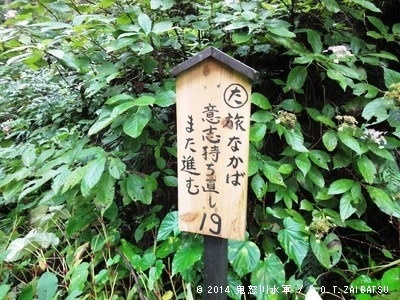 た
旅なかば
意志持ち直し
また進む
19
© 2014 鬼怒川水軍 / A.O.T. ZAIBATSU